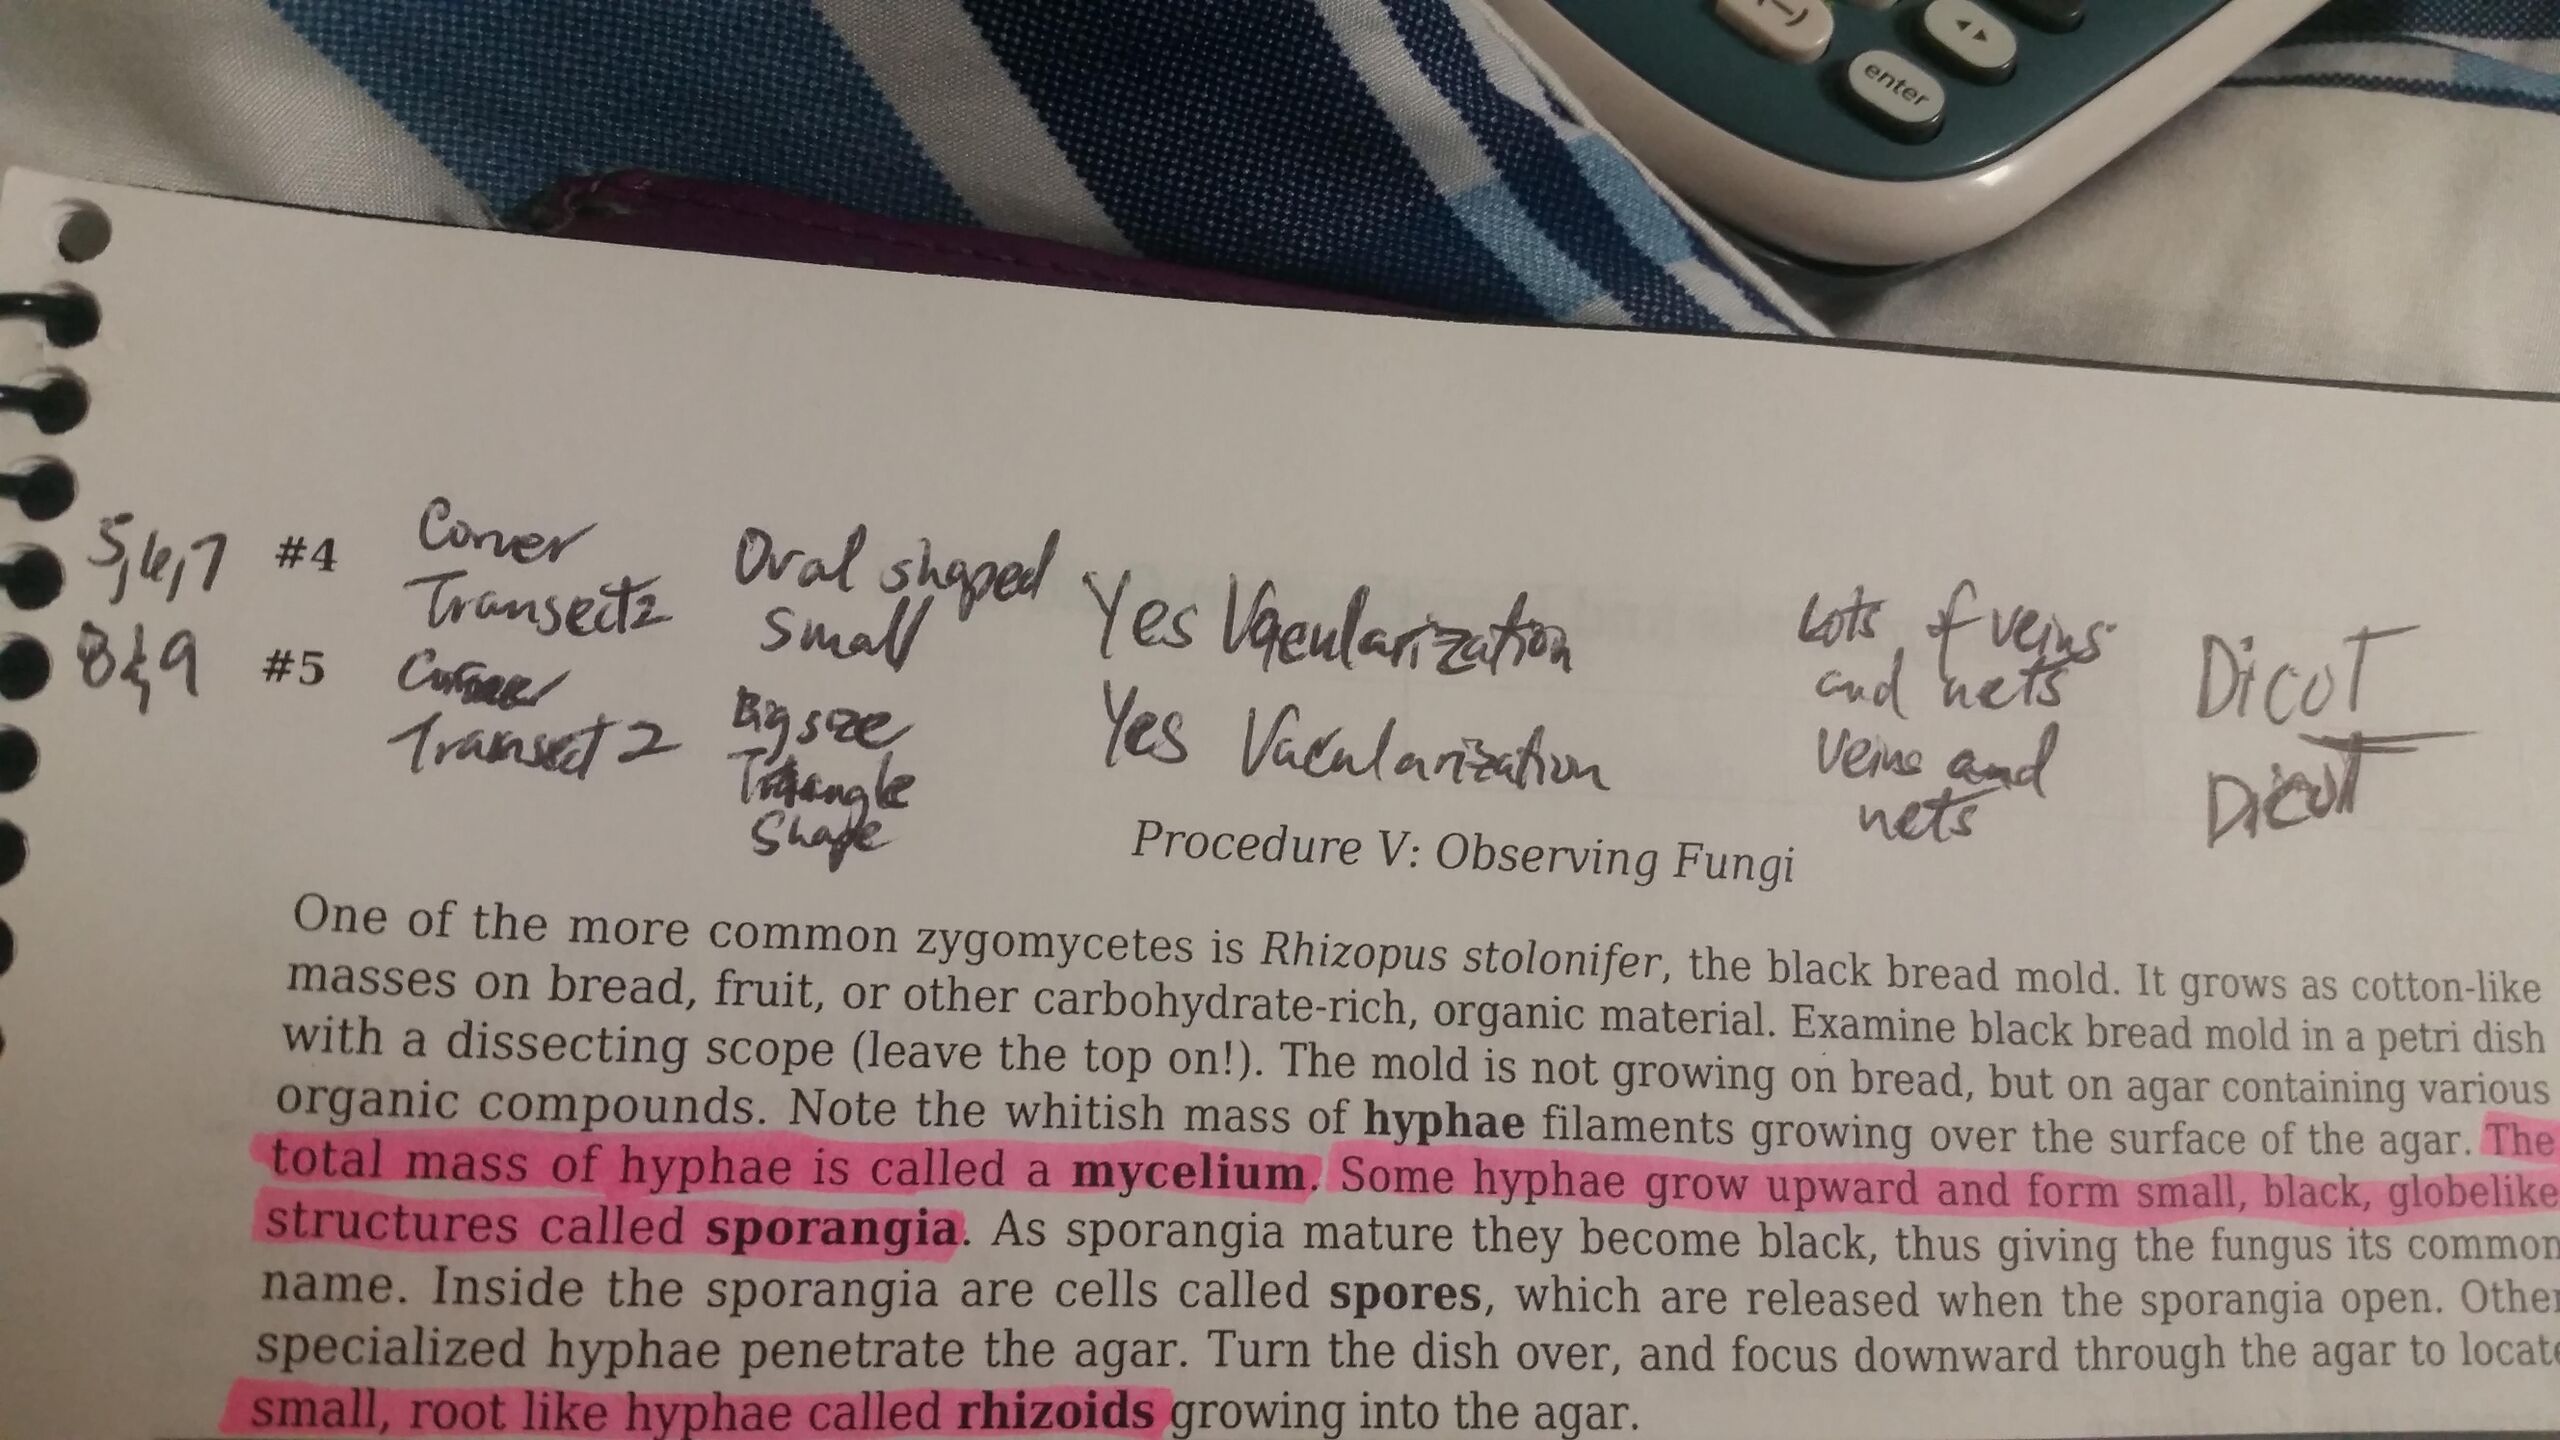 (−)
enter
5,6,7 #4 Corner Transect 2 Oval shaped small Yes Vacularization Lots of veins and nets Dicot
8 & 9 #5 Corner Transect 2 Big size Triangle Shape Yes Vacularization Veins and nets Dicot
Procedure V: Observing Fungi
One of the more common zygomycetes is Rhizopus stolonifer, the black bread mold. It grows as cotton-like
masses on bread, fruit, or other carbohydrate-rich, organic material. Examine black bread mold in a petri dish
with a dissecting scope (leave the top on!). The mold is not growing on bread, but on agar containing various
organic compounds. Note the whitish mass of hyphae filaments growing over the surface of the agar. The
total mass of hyphae is called a mycelium. Some hyphae grow upward and form small, black, globelike
structures called sporangia. As sporangia mature they become black, thus giving the fungus its common
name. Inside the sporangia are cells called spores, which are released when the sporangia open. Other
specialized hyphae penetrate the agar. Turn the dish over, and focus downward through the agar to locate
small, root like hyphae called rhizoids growing into the agar.